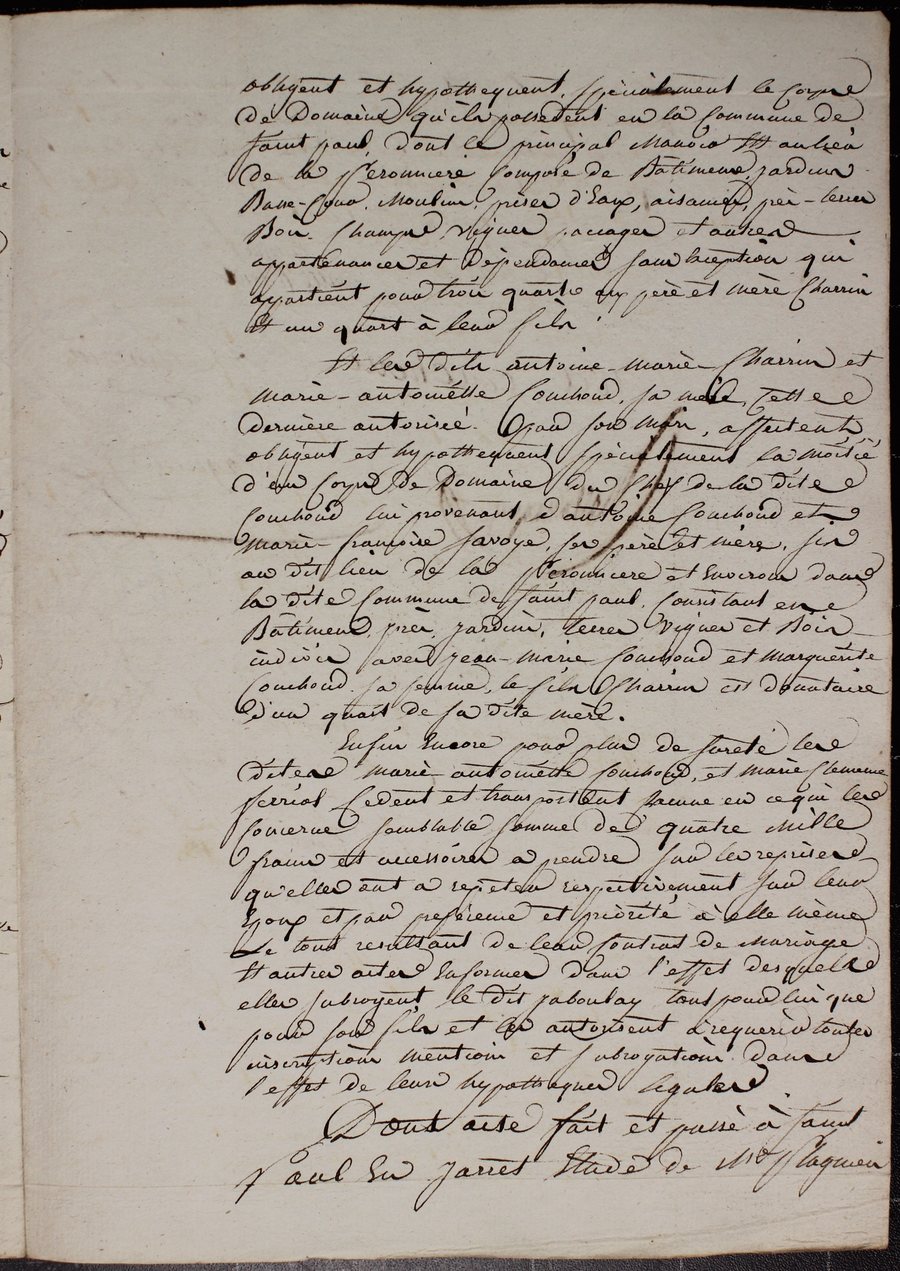 obligent et hypothequent, spécialement le corps
de Domaine qu'ils possedent en la Commune de
saint paul, dont le principal Manoir Est au lieu
de la Peronniere Composé de Bâtimens, jardin
Basse-Cour, Moulin, prises d'Eaux, aisances, près, terres
Bois, Champs, vignes pacages et autres
appartenances et dépendances sans Exception qui
appartient pour trois quarts aux père et mère Charrin
Et un quart à leur fils.
Et les dits antoine-Marie Charrin et
Marie-antoinette Couchoud, sa mère, Cette
derniere autorisée par son Mari, affectent
obligent et hypothequent spécialement la moitié
d'un Corps de Domaine du Chef de la dite
Couchoud lui provenant d'antoine Couchoud et
Marie-françoise Savoye, ses père et mère, sis
au dit lieu de la Peronniere et Environs dans
la dite Commune de saint paul, Consistant en
Bâtimens, près, jardins, terres vignes et Bois
indivis avec jean-Marie Couchoud et Marguerite
Couchoud sa femme, le fils Charrin est donataire
d'un quart de sa dite mère.
Enfin Encore pour plus de sureté les
dites Marie antoinette Couchoud, et Marie Clemence
ferriol Cedent et transportent Comme en ce qui les
Concerne semblable somme de quatre Mille
francs et accessoires a prendre sur les reprises
qu'elles ont a repeter respectivement sur leur
Epoux et par preférence et priorité à elle même
Le tout resultant de leur Contrat de Mariage
Et autres actes En forme dans l'effet desquels
elles subrogent le dit jaboulay tant pour lui que
pour son fils et les autorisent à requerir toutes
inscriptions mentions et subrogations dans
l'effet de leurs hypotheques légales
Dont acte fait et passé à saint
Paul En Jarret Etude de Me